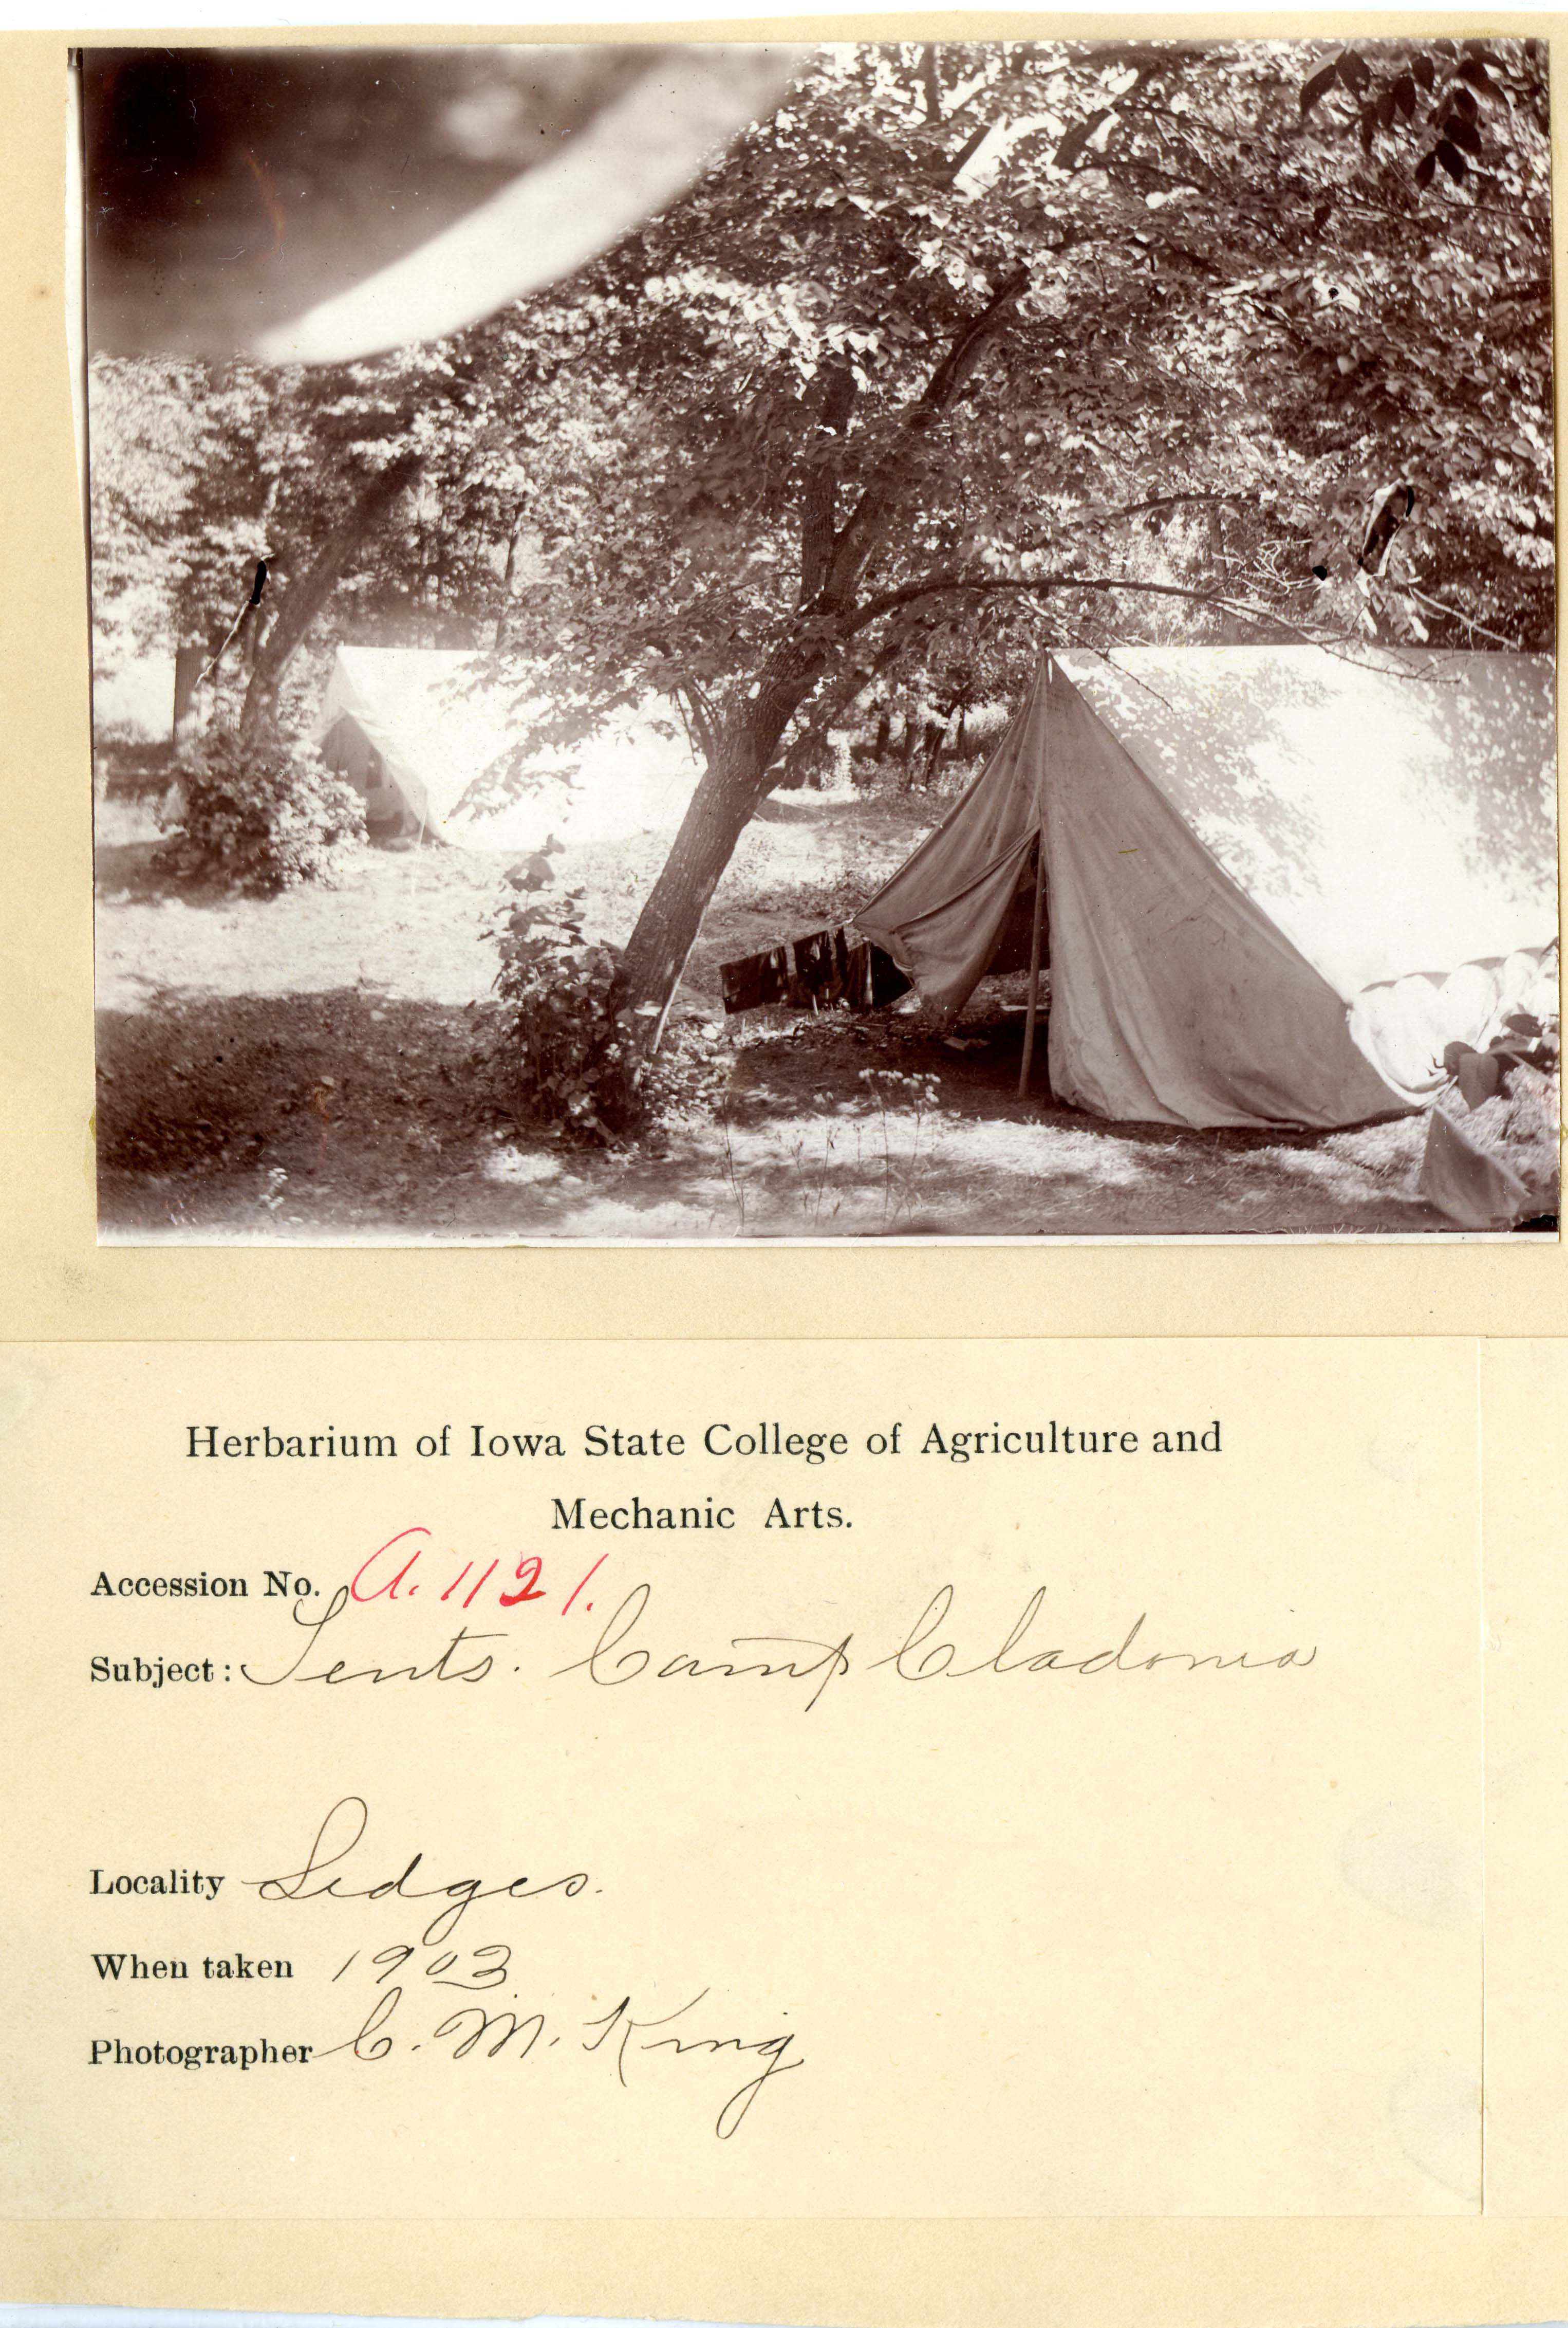 Herbarium of Iowa State College of Agriculture and
Mechanic Arts.
Accession No. A. 1121.
Subject: Tents. Camp Cladonia
Locality Ledges.
When taken 1903
Photographer C. M. King